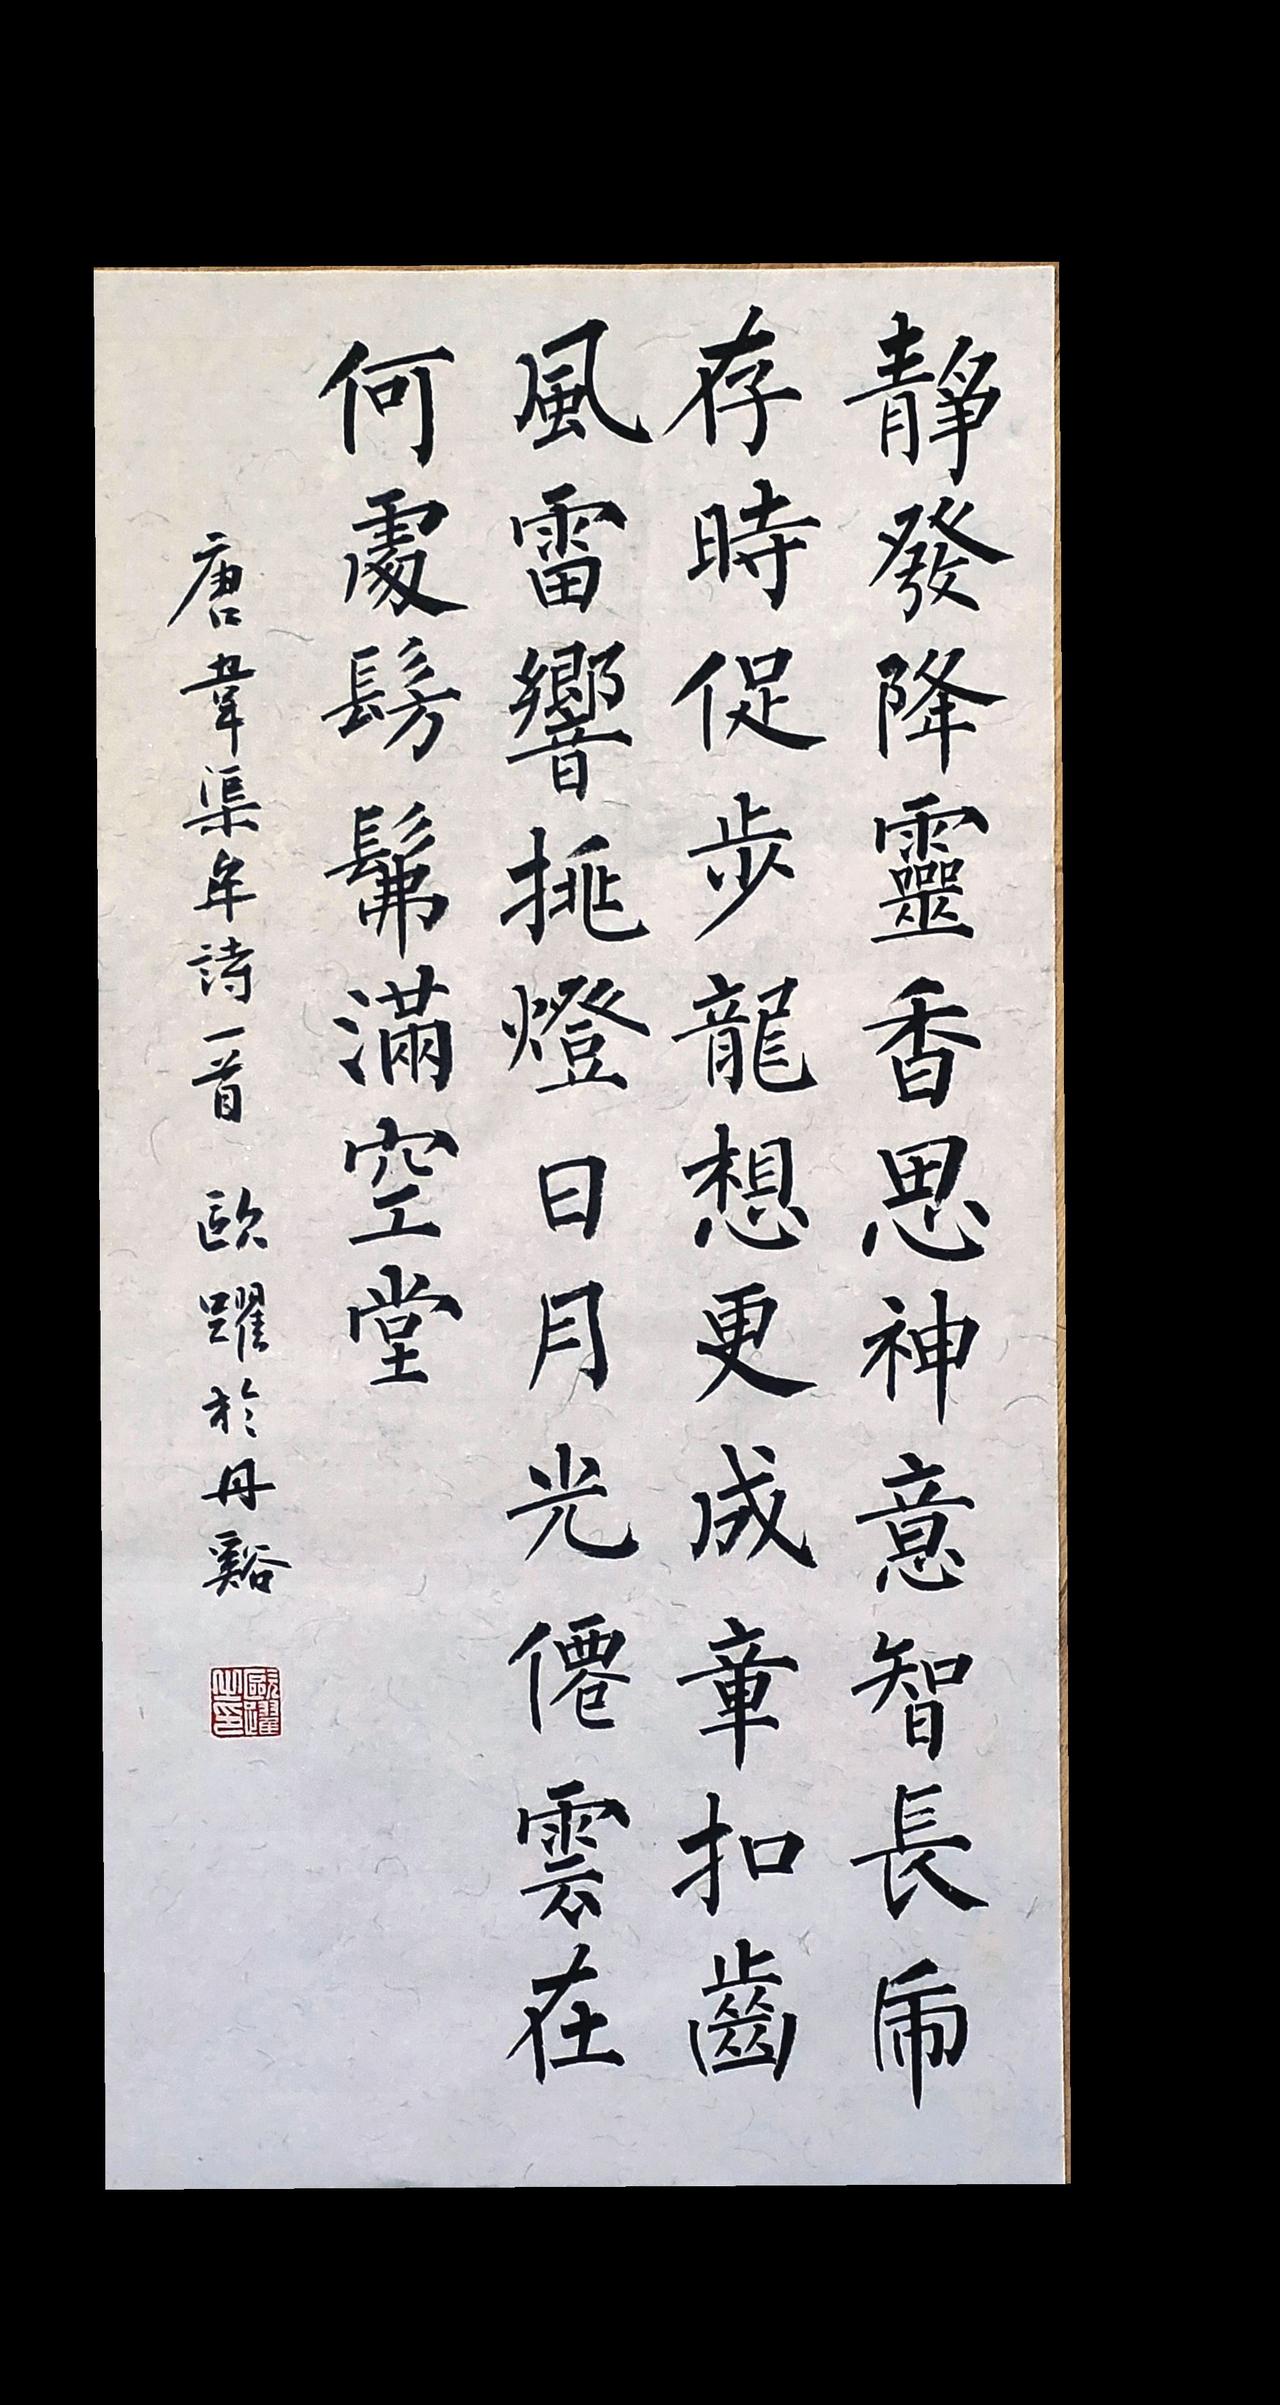 靜發降靈香思神意智長虎
存時促步龍想更成章扣齒
風雷響挑燈日月光僊雲在
何處髣髴滿空堂
唐韋渠牟詩一首 歐躍於丹谿
歐躍之印